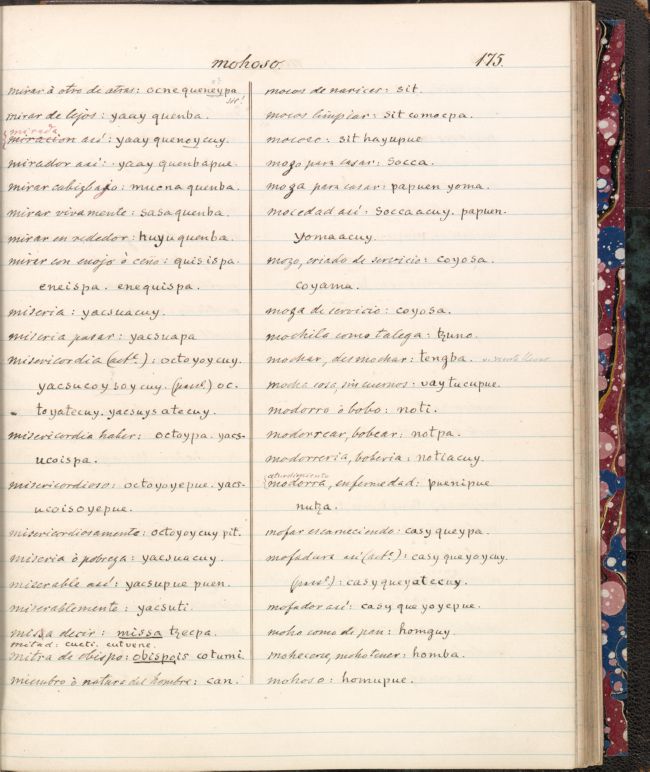 mohoso.
175.
mirar à otro de atras: ocnequeneypa
mirar de lejos: yaay quenba.
mirada
miracion asi: yaay quenoycuy.
mirador asi: yaay quenbapue.
mirar cabizbajo: mucnaquenba.
mirar vivamente: sasaquenba.
mirar en rededor: huyuquenba.
mirar con enojo ò ceño: quisispa.
eneispa. enequispa.
miseria: yacsuacuy.
miseria pasar: yacsuapa
misericordia (act.): octoyoycuy.
yacsucoysoycuy. (pas.) oc-
toyatecuy. yacsuysatecuy.
misericordia haber: octoypa. yacs-
ucoispa.
misericordioso: octoyoyepue. yacs-
ucoisoyepue.
misericordiosamente: octoyoycuy pit.
miseria ò pobreza: yacsuacuy.
miserable asi: yacsupue puen.
miserablemente: yacsuti.
missa decir: missa tzecpa.
mitad: cucti. cutvene.
mitra de obispo: obispois cotumi.
miembro ò natura del hombre: can.
mocos de narices: sit.
mocos limpiar: sit comocpa.
mocoso: sit hayupue
mozo para casar: socca.
moza para casar: papuen yoma.
mocedad asi: soccaacuy. papuen-
yomaacuy.
mozo, criado de servicio: coyosa.
coyama.
moza de servicio: coyosa.
mochila como talega: tzuno.
mochar, desmochar: tengba.
mocha cosa, sin cuernos: vaytucupue.
modorro ò bobo: noti.
modorrear, bobear: notpa.
modorreria, boberia: notiacuy.
aturdimiento
modorra, enfermedad: puenipue
nutza.
mofar escarneciendo: casyqueypa.
mofadura asi (act.): casyqueyoycuy.
(pas.): casyqueyatecuy.
mofador asi: casyqueyoyepue.
moho como de pan: homguy.
mohecerse, moho tener: homba.
mohoso: homupue.